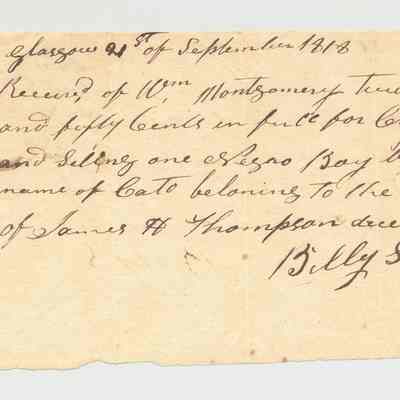 Glasgow 21st of September 1818
Received of Wm Montgomery
and fifty Cents in full for
and Selling one Negro Boy
name of Cato beloning to the
of James H Thompson dece
Billy S